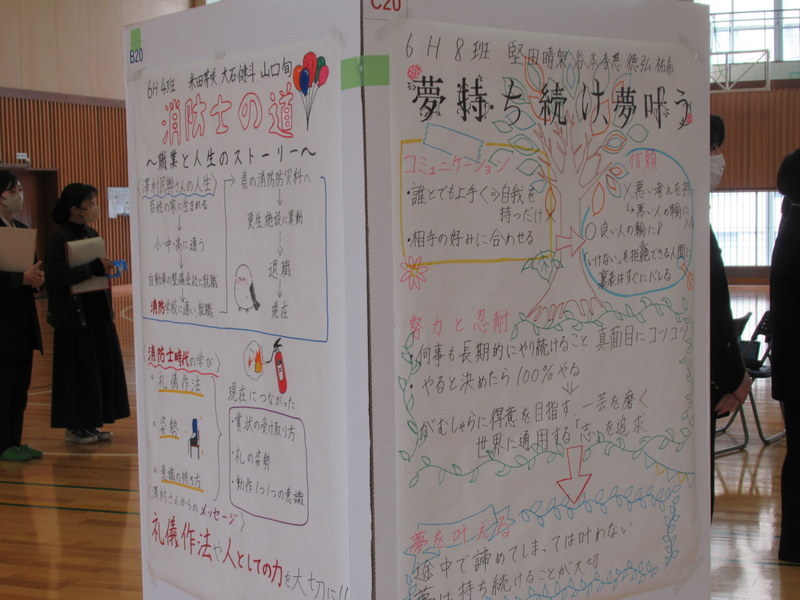 B20
6H4班 米田芽央 大石健斗 山口旬
消防士の道
～職業と人生のストーリー～
自然の家に生まれる
小・中・高に通う
自動車の整備会社に就職
消防学校に通い就職
県の消防防災科へ
更生施設に異動
退職
現在
消防士時代の学び
・礼儀作法
・姿勢
・意識の持ち方
現在につながった
・賞状の受け取り方
・礼の姿勢
・動作1つ1つの意識
〈澤村さんからのメッセージ〉
礼儀作法や人としての力を大切に!!
C20
6H8班 堅田晴賀
夢持ち続け、夢叶う
コミュニケーション
・誰とでも上手く
自我を
持つだけ×
・相手の好みに合わせる
信頼
×悪い考えを持
↳悪い人の輪に
○良い人の輪に
「いけない」を拒絶できる人間に
裏表はすぐにバレる
努力と忍耐
・何事も長期的にやり続けること 真面目にコツコツ
・やると決めたら100%やる
がむしゃらに得意を目指す、一芸を磨く
世界に通用する「志」を追求
夢を叶える
途中で諦めてしまっては叶わない
夢は持ち続けることが大切